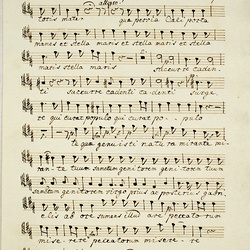 toris mater allegro que pervia Cæli porta
manes et stella maris et stella maris et stella
maris stella maris succurre caden,
ti succurre cadenti cadenti surge,
re qui curat populo qui curat po pulo
te que genuisti natura mirante mi,
ran te tuum sanctum genitorem genitorem tuum
sanctum genitorem virgo prius ac posterius gabri,
elis ab ore sumens illus ave peccatorum
miserere peccatorum miserere re